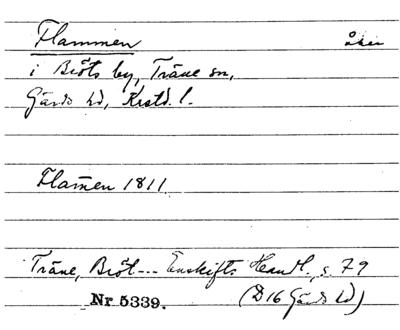 Flammen åker
i Bröts by, Träne sn,
Gärds hd, Krstd. l.
Flam̄en 1811
Träne, Bröt--- Enskifts Handl. s. 79
Nr 5339. (D16 Gärds hd)